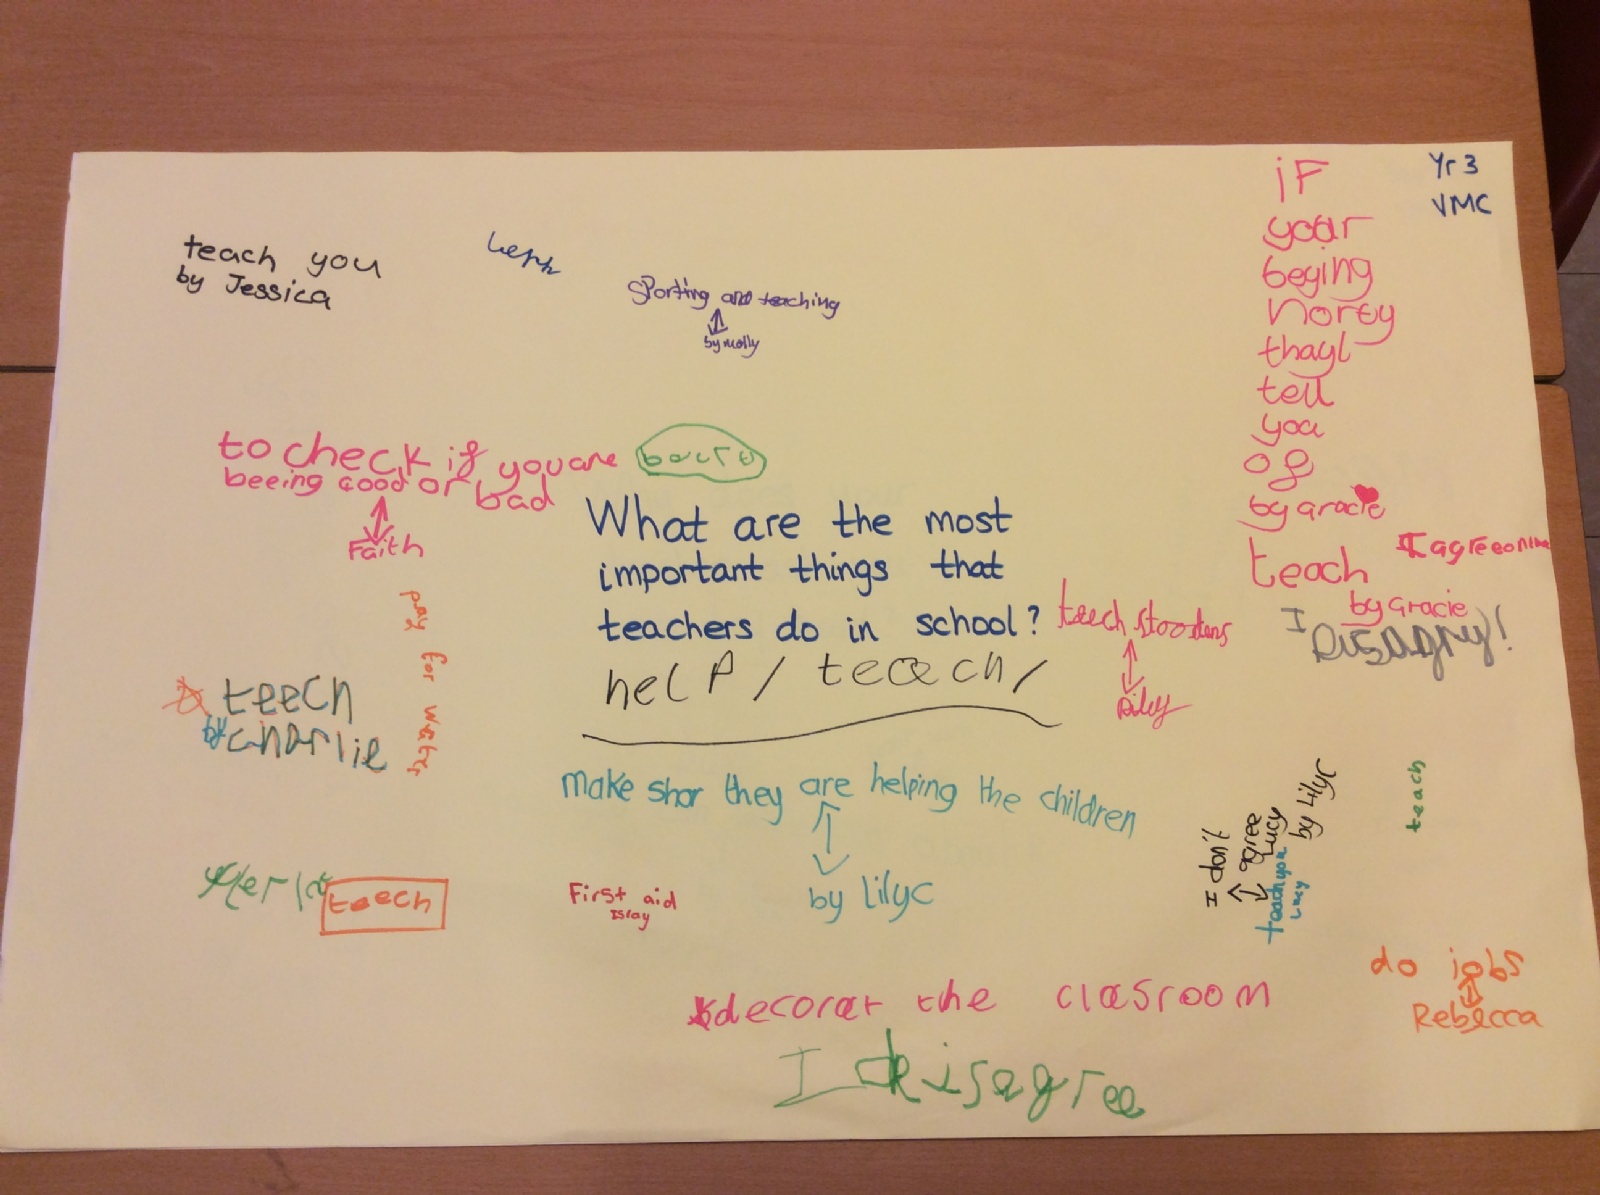 Yr 3
VMC
iF
yoar
beying
Norty
thayl
tell
you
of
by Gracie
teach
by Gracie
I agree
I
Disagry!
teach you
by Jessica
Sporting and teaching
by molly
to check if you are
beeing Good or bad
Faith
What are the most
important things that
teachers do in school?
help / teach /
teech stoodens
Riley
pay for water
teech
by Charlie
make shor they are helping the children
by Lilyc
teech
First aid
Islay
I don't
agree
Lucy
by Lilyc
teach you
Lucy
teach
do jobs
Rebecca
decorat the clasroom
I disagree